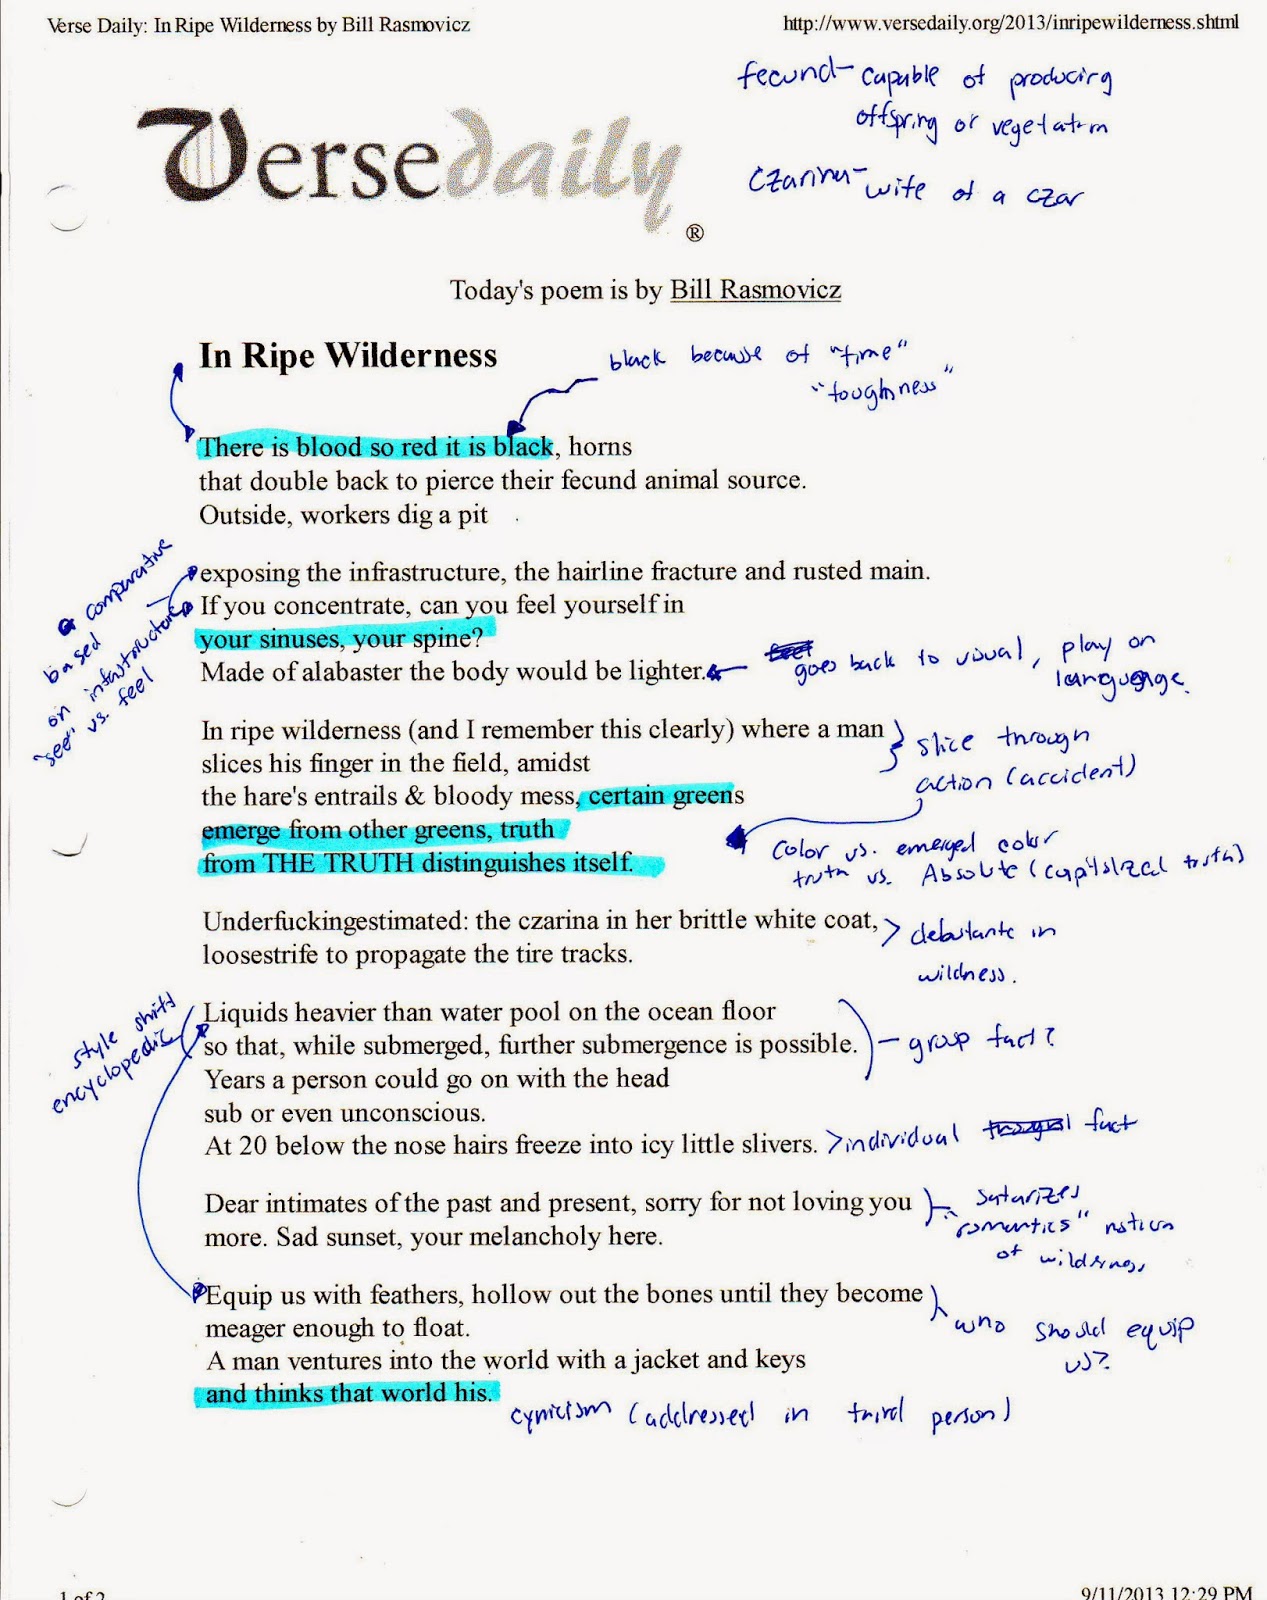 Verse Daily: In Ripe Wilderness by Bill Rasmovicz
http://www.versedaily.org/2013/inripewilderness.shtml
fecund- capable of producing
offspring or vegetation
Czarina- wife of a czar
Versedaily
®
Today's poem is by Bill Rasmovicz
In Ripe Wilderness
black because of "time"
"toughness"
There is blood so red it is black, horns
that double back to pierce their fecund animal source.
Outside, workers dig a pit
comparative
based
on infastructure
"see" vs. feel
exposing the infrastructure, the hairline fracture and rusted main.
If you concentrate, can you feel yourself in
your sinuses, your spine?
Made of alabaster the body would be lighter.
goes back to visual, play on
language.
In ripe wilderness (and I remember this clearly) where a man
slices his finger in the field, amidst
the hare's entrails & bloody mess, certain greens
emerge from other greens, truth
from THE TRUTH distinguishes itself.
slice through
action (accident)
Color vs. emerged color
truth vs. Absolute (capitalized truth)
Underfuckingestimated: the czarina in her brittle white coat,
loosestrife to propagate the tire tracks.
debutante in
wildness.
style shifts
encyclopedic
Liquids heavier than water pool on the ocean floor
so that, while submerged, further submergence is possible.
Years a person could go on with the head
sub or even unconscious.
At 20 below the nose hairs freeze into icy little slivers.
group fact?
individual fact
Dear intimates of the past and present, sorry for not loving you
more. Sad sunset, your melancholy here.
satarizes
"romantics" notion
of wilderness
Equip us with feathers, hollow out the bones until they become
meager enough to float.
A man ventures into the world with a jacket and keys
and thinks that world his.
who should equip
us?
cynicism (addressed in third person)
1 of 2
9/11/2013 12:29 PM